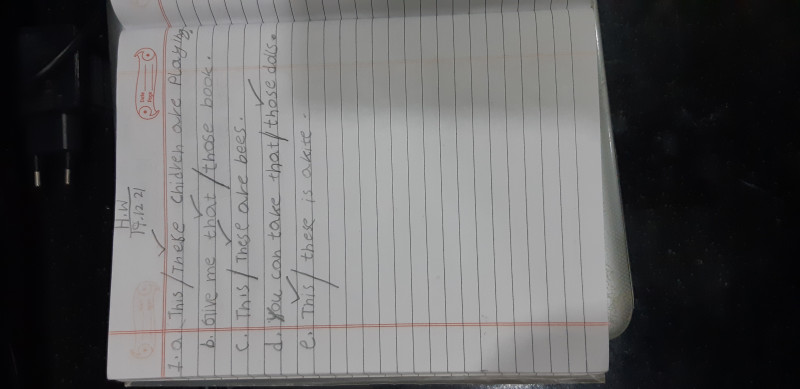 H.W
14.12.21
1. a. This/These Chidren are Playing.
b. Give me that/those book.
c. This/These are bees.
d. You can take that/those dolls.
e. This/these is a kite.